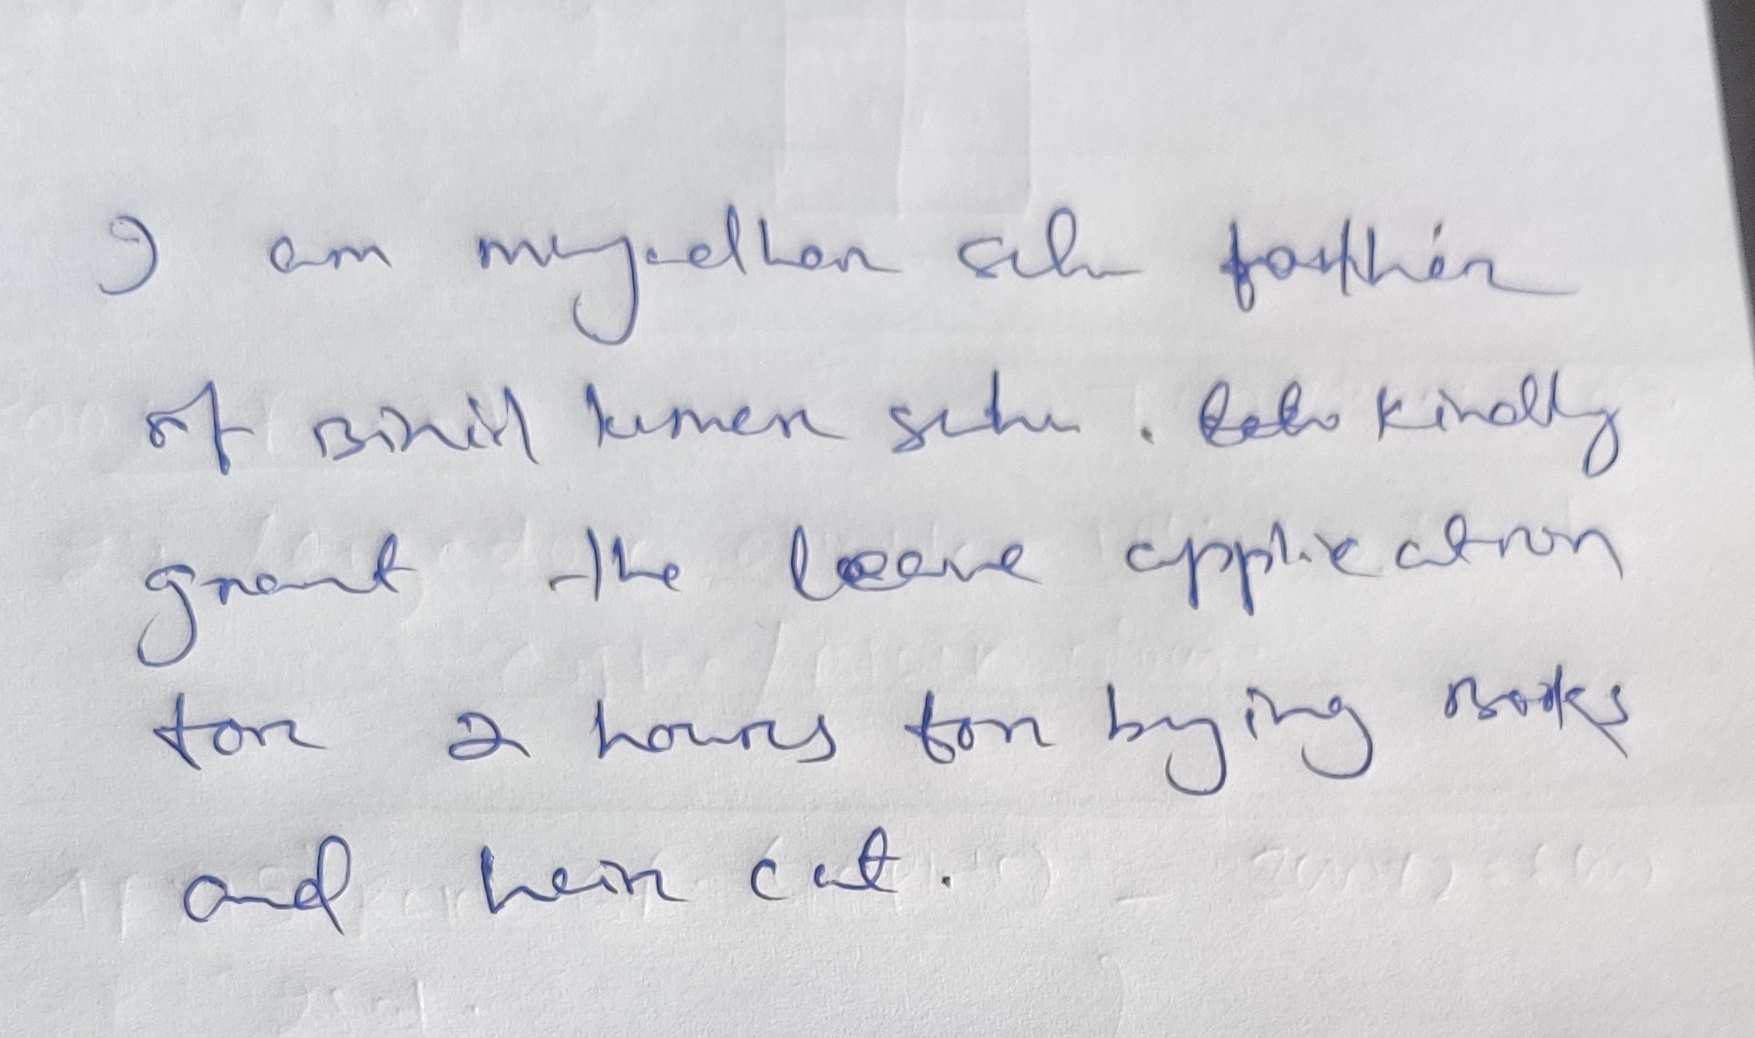 I am mayadhar sahu father
of Binil kumar sahu. kindly
grant the leave application
for 2 hours for bying Books
and hair cut.